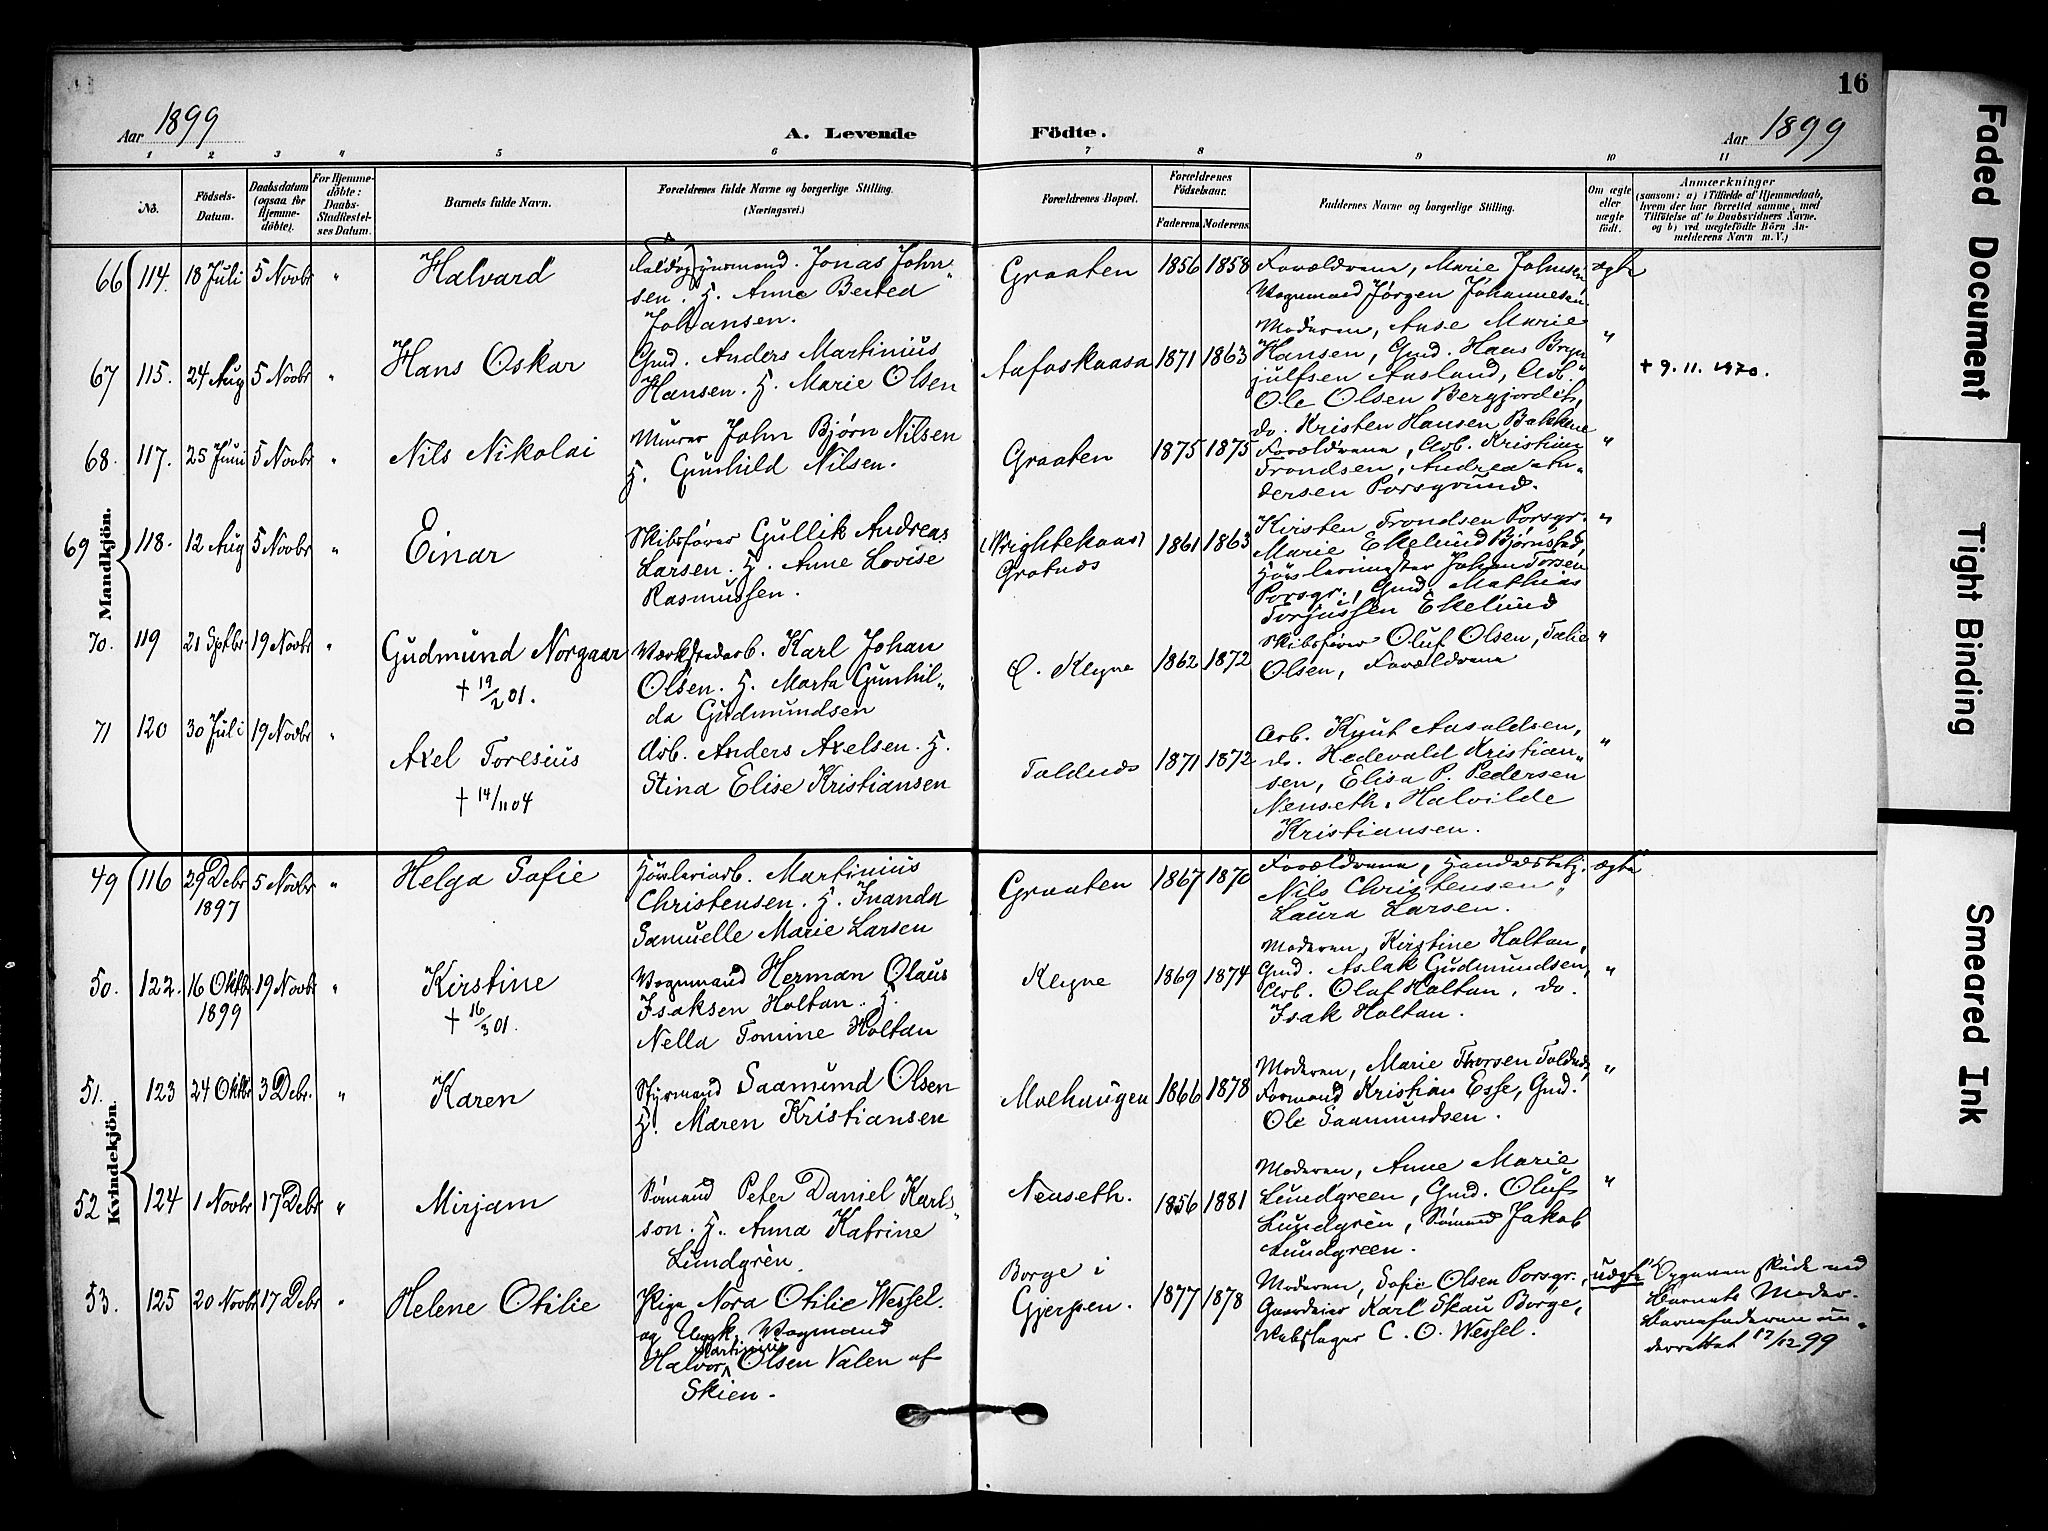 16
Aar 1899
A. Levende Födte.
Aar 1899
1 2 3 4 5 6 7 8 9 10 11
No.
Födsels-Datum.
Daabsdatum (ogsaa for Hjemme-döbte).
For Hjemme-döbte: Daabs-Stadfæstel-ses Datum.
Barnets fulde Navn.
Forældrenes fulde Navne og borgerlige Stilling. (Næringsvei.)
Forældrenes Bopæl.
Forældrenes Födselsaar.
Faderens
Moderens
Faddernes Navne og borgerlige Stilling.
Om ægte eller uægte födt.
Anmærkninger
(saasom: a) i Tilfælde af Hjemmedaab, hvem der har forrettet samme, med Tilföielse af to Daabsvidners Navne. og b) ved uægtefödte Börn An-melderens Navn m. V.)
Mandkjön.
66 114. 18 Juli 5 Novbr " Halvard
Jonas John-
sen. H. Anne Berthea
Johansen.
Graaten 1856 1858
Forældrene, Marie Johnsen,
Vognmand Jörgen Johannesen.
ægte
67 115. 24 Aug 5 Novbr " Hans Oskar
Gmd. Anders Martinius
Hansen. H. Marie Olsen
Aafoskaasa 1871 1863
Moderen, Aase Marie
Hansen, Gmd. Hans Bryn
julfsen Aasland, Arb.
Ole Olsen Bergjordet,
do. Kristen Hansen Bakkene
"
+ 9.11.1970.
68. 117. 25 Juni 5 Novbr " Nils Nikolai
Murer John Bjørn Nilsen
H. Gunhild Nilsen.
Graaten 1875 1875
Forældrene, Arb. Kristian
Trondsen, Andrea An-
dersen Porsgrund.
"
69 118. 12 Aug 5 Novbr " Einar
Skibsfører Gullik Andreas
Larsen. H. Anne Lovise
Rasmussen.
(Wrightekaas)
Grotnæs
1861 1863
Kirsten Trondsen Porsgr.
Marie Ekelund Bjørnstad,
Høvlerimester Johan Torsen
Porsgr., Gmd. Mathias
Torjussen Ekelund
"
70. 119 21 Septbr. 19 Novbr " Gudmund Norgaar
+ 19/2 01.
Værkstedarb. Karl Johan
Olsen. H. Marta Gunhil-
da Gudmundsen
Ø. Klyve 1862 1872
Skibsfører Oluf Olsen, Talie
Olsen, Forældrene
"
71 120 30 Juli 19 Novbr " Axel Toresius
+ 14/11 04
Arb. Anders Axelsen. H.
Stina Elise Kristiansen
Toldnæs 1871 1872
Arb. Knut Aasoldsen,
do. Hedevald Kristian-
sen, Elisa P. Pedersen
Nenseth, Halvilde
Kristiansen.
"
Kvindekjön.
49 116 29 Debr 1897 5 Novbr " Helga Sofie
Høvleriarb. Martinius
Christensen. H. Inanda
Samuelle Marie Larsen
Graaten 1867 1870
Forældrene, Handelsbetj.
Nils Christensen,
Laura Larsen.
ægte
50. 122. 16 Oktbr 1899 19 Novbr " Kirstine
+ 16/3 01.
Vognmand Herman Olaus
Isaksen Holtan. H.
Nella Tomine Holtan
Klyve 1869 1874
Moderen, Kirstine Holtan,
Gmd. Aslak Gudmundsen,
Arb. Olaf Holtan, do.
Isak Holtan.
"
51. 123 24 Oktbr 3 Debr. " Karen
Styrmand Saamund Olsen
H. Maren Kristiansen
Molhaugen 1866 1878
Moderen, Marie Thorsen Toldnæs,
Formand Kristian Esse, Gmd.
Ole Saamundsen.
"
52 124 1 Novbr 17 Debr " Mirjam
Sømand Peter Daniel Karls-
son. H. Anna Katrine
Lundgrèn.
Nenseth. 1856 1881
Moderen, Anne Marie
Lundgreen, Gmd. Oluf
Lundgrèn, Sømand Jakob
Lundgreen.
"
53. 125 20 Novbr 17 Debr " Helene Otilie
Pige Nora Otilie Wessel.
og Ungk. Vogmand
Halvor Martinius Olsen Valen af
Skien.
Borge i
Gjerpen.
1877 1878
Moderen, Sofie Olsen Porsgr.,
Gaardeier Karl Skau Borge,
Rebslager C. O. Wessel.
uægte
Opgaven skede ved
Barnets Moder.
Barnefaderen un-
derrettet 17/12 99
Faded Document
Tight Binding
Smeared Ink